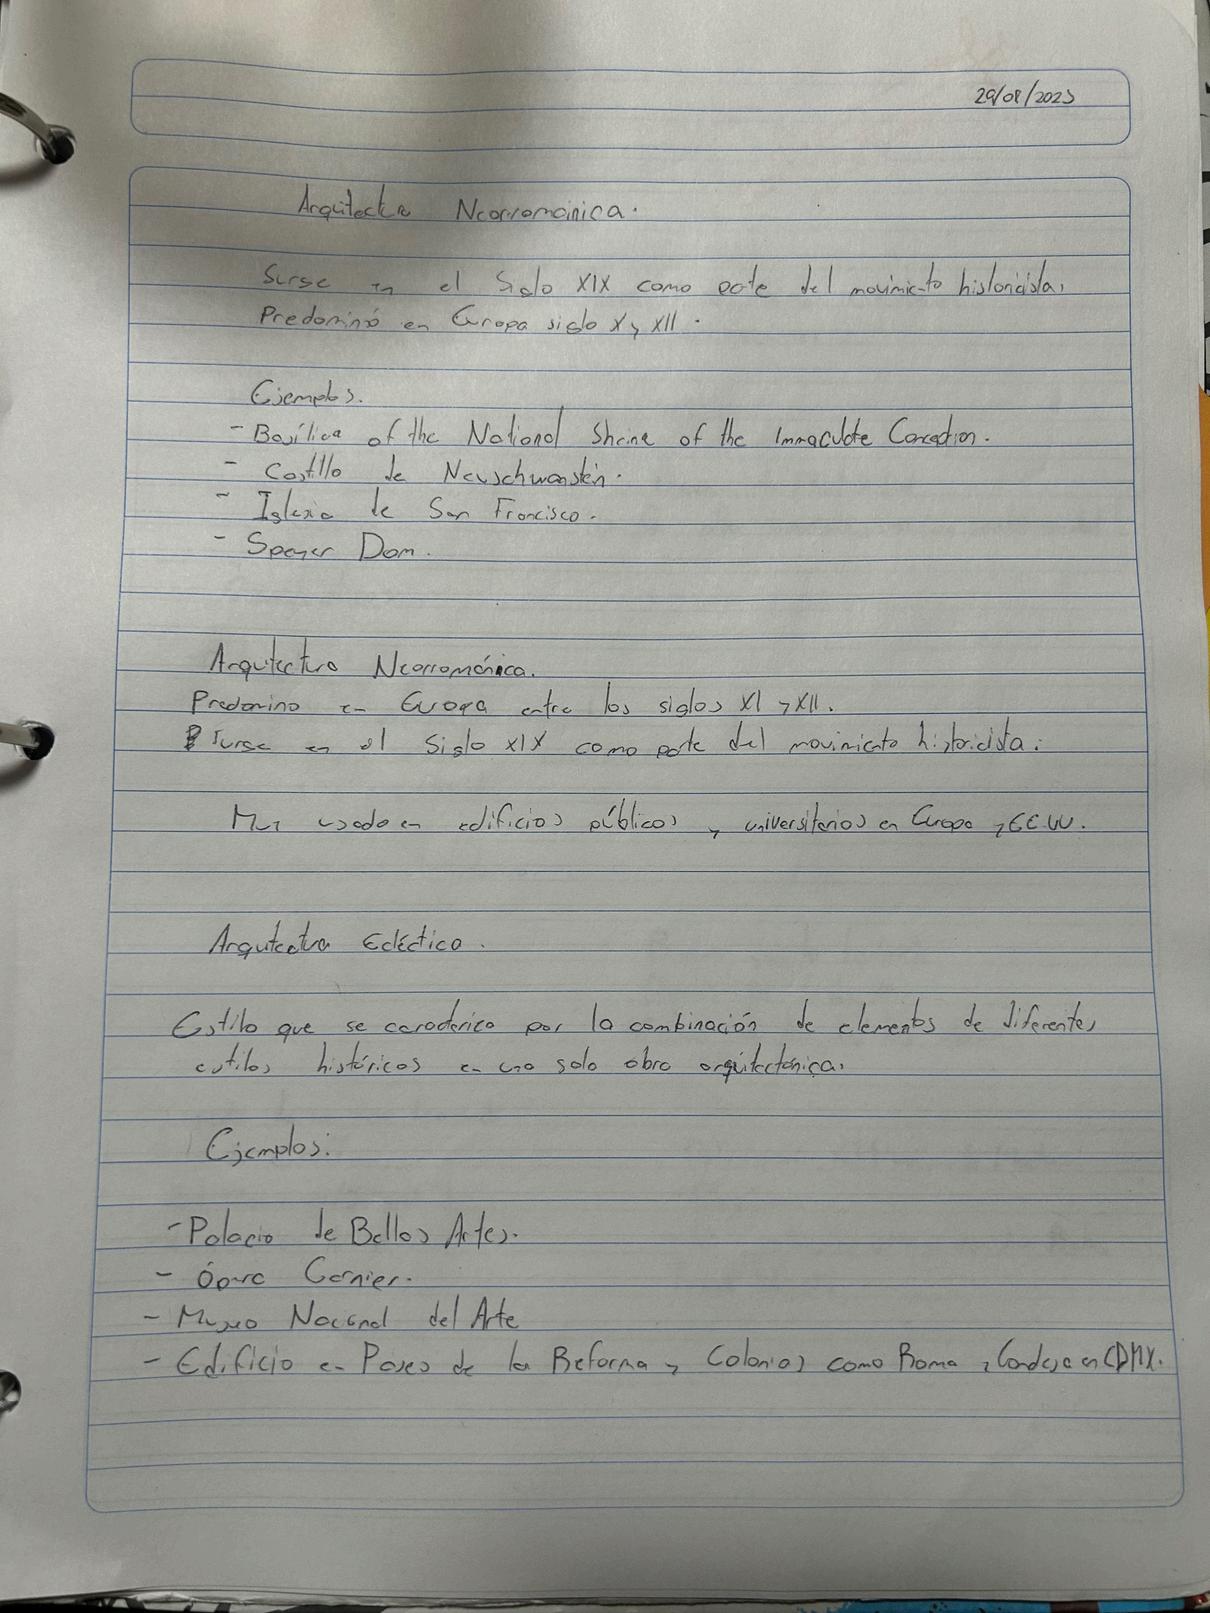 29/08/2025
Arquitectra Neorrománica.
Surge en el Siglo XIX como parte del movimiento historicista,
Predominó en Europa siglo X y XII.
Ejemplos.
- Basílica of the National Shrine of the Immaculate Conception.
- Castillo de Neuschwanstein.
- Iglesia de San Francisco.
- Speyer Dom.
Arquitectura Neorrománica.
Predomino en Europa entre los siglos XI y XII.
Surge en el Siglo XIX como parte del movimiento historicista.
Muy usado en edificios públicos y universitarios en Europa y EE.UU.
Arquitectura Ecléctica.
Estilo que se caracterico por la combinación de elementos de diferentes
estilos históricos en una sola obra arquitectónica.
Ejemplos:
- Palacio de Bellas Artes.
- Ópera Garnier.
- Museo Nacional del Arte
- Edificio en Paseo de la Reforma y Colonias como Roma y Condesa en CDMX.